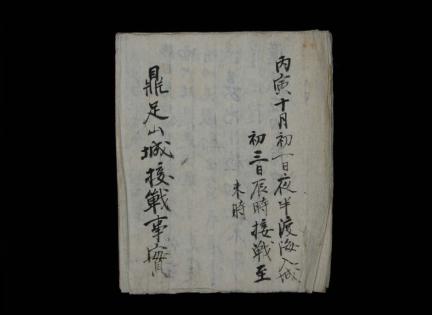 丙寅十月初一日夜半渡海入城
初三日辰時接戰至
未時
鼎足山城接戰事實